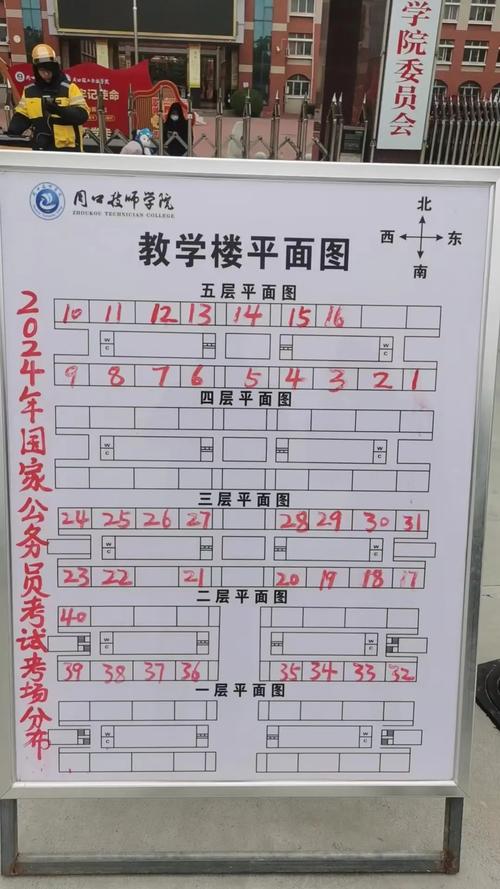 学院委员会
牢记使命
周口技师学院
ZHOUKOU TECHNICIAN COLLEGE
北
西 东
南
教学楼平面图
2024年国家公务员考试考场分布
五层平面图
10 11 12 13 14 15 16
WC WC
9 8 7 6 5 4 3 2 1
四层平面图
WC WC
三层平面图
24 25 26 27 28 29 30 31
WC WC
23 22 21 20 19 18 17
二层平面图
40
WC WC
39 38 37 36 35 34 33 32
一层平面图
WC WC